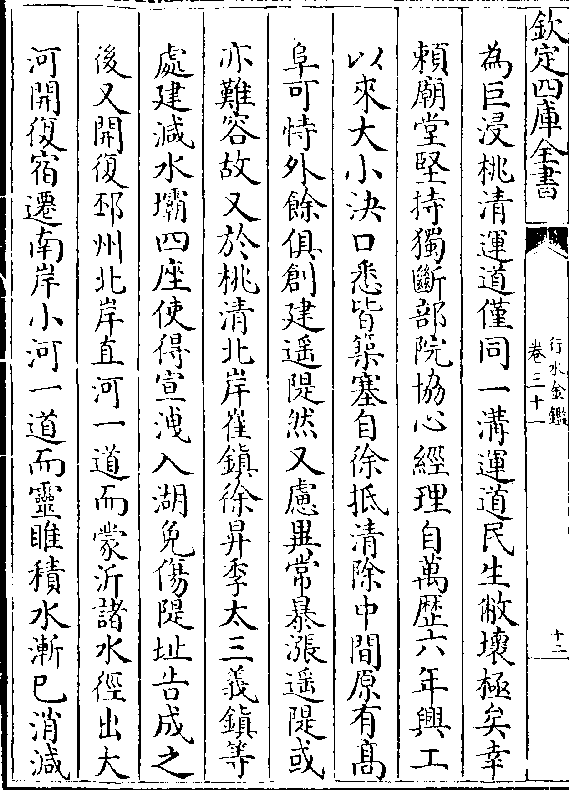 欽定四庫全書
行水金鑑
卷三十一
十二
為巨浸桃清運道僅同一溝運道民生敝壞極矣幸
頼廟堂堅持獨斷部院協心經理自萬歴六年興工
以來大小決口悉皆築塞自徐抵清除中間原有髙
阜可恃外餘俱創建遥隄然又慮異常暴漲遥隄或
亦難容故又於桃清北岸崔鎮徐昇季太三義鎮等
處建減水壩四座使得宣洩入湖免傷隄址告成之
後又開復邳州北岸直河一道而蒙沂諸水徑出大
河開復宿遷南岸小河一道而靈睢積水漸已消減